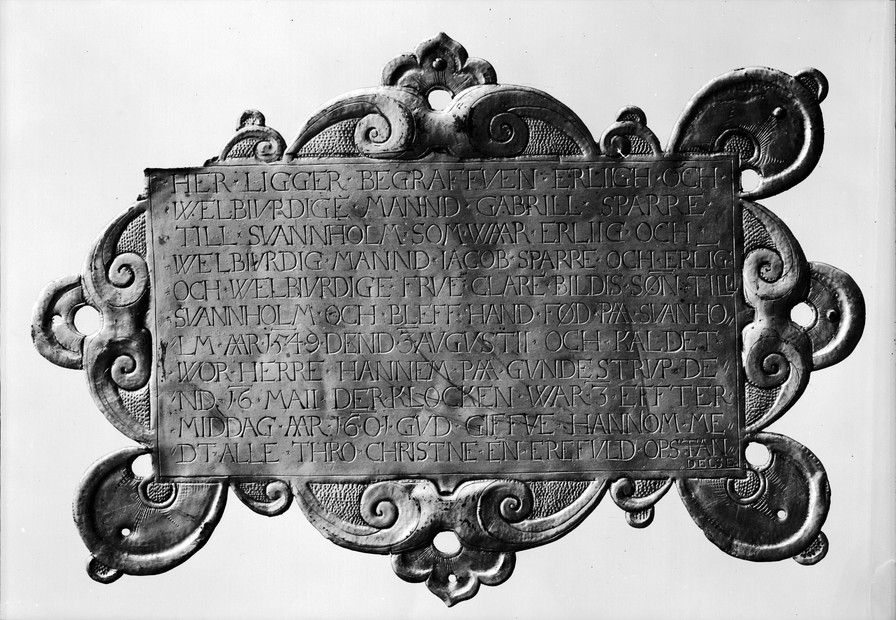 HER · LIGGER · BEGRAFFVEN · ERLIGH · OCH ·
WELBIVRDIGE MANND · GABRILL · SPARRE ·
TILL · SVANNHOLM · SOM · WAAR · ERLIIG · OCH
WELBIVRDIG · MANND · IACOB · SPARRE · OCH · ERLIG
OCH · WELBIVRDIGE · FRVE · CLARE · BILDIS · SØN · TILL
SVANNHOLM · OCH · BLEFF · HAND · FØD · PAA · SVANHO
LM · AAR · 1549 · DEND · 3 AVGVSTII · OCH · KALDET
WOR · HERRE · HANNEM · PAA · GVNDESTRVP · DE
ND · 16 · MAII · DER · KLOCKEN · WAR · 3 · EFFTER
MIDDAG · AAR · 1601 · GVD · GIFFVE · HANNOM · ME
DT · ALLE · THRO · CHRISTNE · EN · EREFVLD · OPSTAN
DELSE